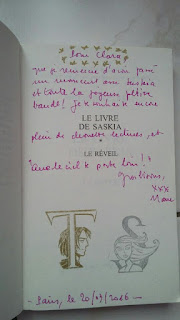 Pour Clara
que je remercie d'avoir passé
un moment avec Saskia
et toute la joyeuse petite
bande ! Je te souhaite encore
LE LIVRE
DE SASKIA
plein de lectures, et
*
LE RÉVEIL
que le ciel te porte loin !!
xxx
Marie
T S
- Paris, le 20/03/2016 -